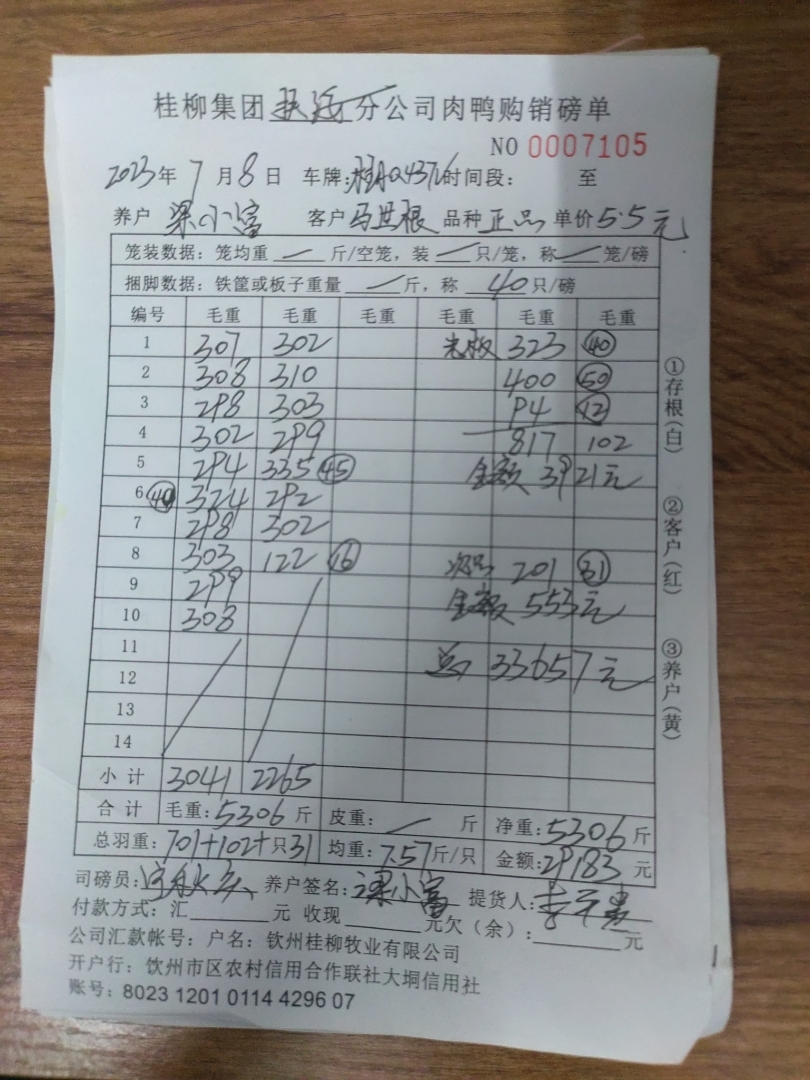 桂柳集团 分公司肉鸭购销磅单
NO 0007105
2023年 7 月 8 日 车牌: 时间段: 至
养户 梁小富 客户 马世根 品种 正品 单价 5.5元
笼装数据: 笼均重 — 斤/空笼, 装 — 只/笼, 称 — 笼/磅
捆脚数据: 铁筐或板子重量 — 斤, 称 40 只/磅
编号 毛重 毛重 毛重 毛重 毛重 毛重
1 307 302 毛板 323 40
2 308 310 400 50
3 298 303 94 12
4 302 299 817 102
5 294 335 45 金额 3921元
6 40 324 292
7 298 302
8 303 122 16 次品 201 31
9 299 金额 553元
10 308
11 总 33657元
12
13
14
小计 3041 2265
合计 毛重: 5306 斤 皮重: — 斤 净重: 5306 斤
总羽重: 701+102+只31 均重: 7.57斤/只 金额: 29183 元
司磅员: 养户签名: 梁小富 提货人:
付款方式: 汇 元 收现 元欠(余): 元
公司汇款帐号: 户名: 钦州桂柳牧业有限公司
开户行: 饮州市区农村信用合作联社大垌信用社
账号: 8023 1201 0114 4296 07
①存根(白)
②客户(红)
③养户(黄)